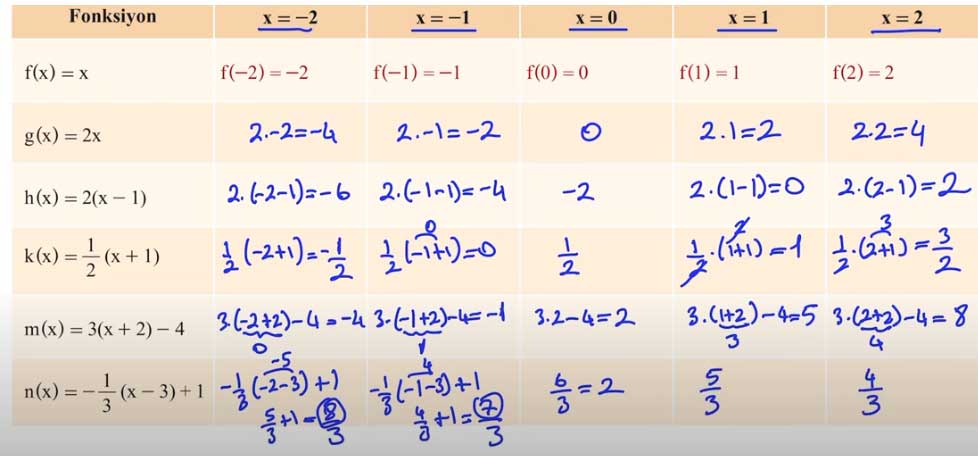 Fonksiyon x = −2 x = −1 x = 0 x = 1 x = 2
f(x) = x f(−2) = −2 f(−1) = −1 f(0) = 0 f(1) = 1 f(2) = 2
g(x) = 2x 2.-2=-4 2.-1=-2 0 2.1=2 2.2=4
h(x) = 2(x − 1) 2.(-2-1)=-6 2.(-1-1)=-4 -2 2.(1-1)=0 2.(2-1)=2
0 2 3
k(x) = 1/2 (x + 1) 1/2 (-2+1)=-1/2 1/2 (-1+1)=0 1/2 1/2.(1+1)=1 1/2.(2+1)=3/2
m(x) = 3(x + 2) − 4 3.(-2+2)-4=-4 3.(-1+2)-4=-1 3.2-4=2 3.(1+2)-4=5 3.(2+2)-4=8
0 1 3 4
-5 4
n(x) = −1/3 (x − 3) + 1 -1/3(-2-3)+1 -1/3(-1-3)+1 6/3=2 5/3 4/3
5/3+1=8/3 4/3+1=7/3